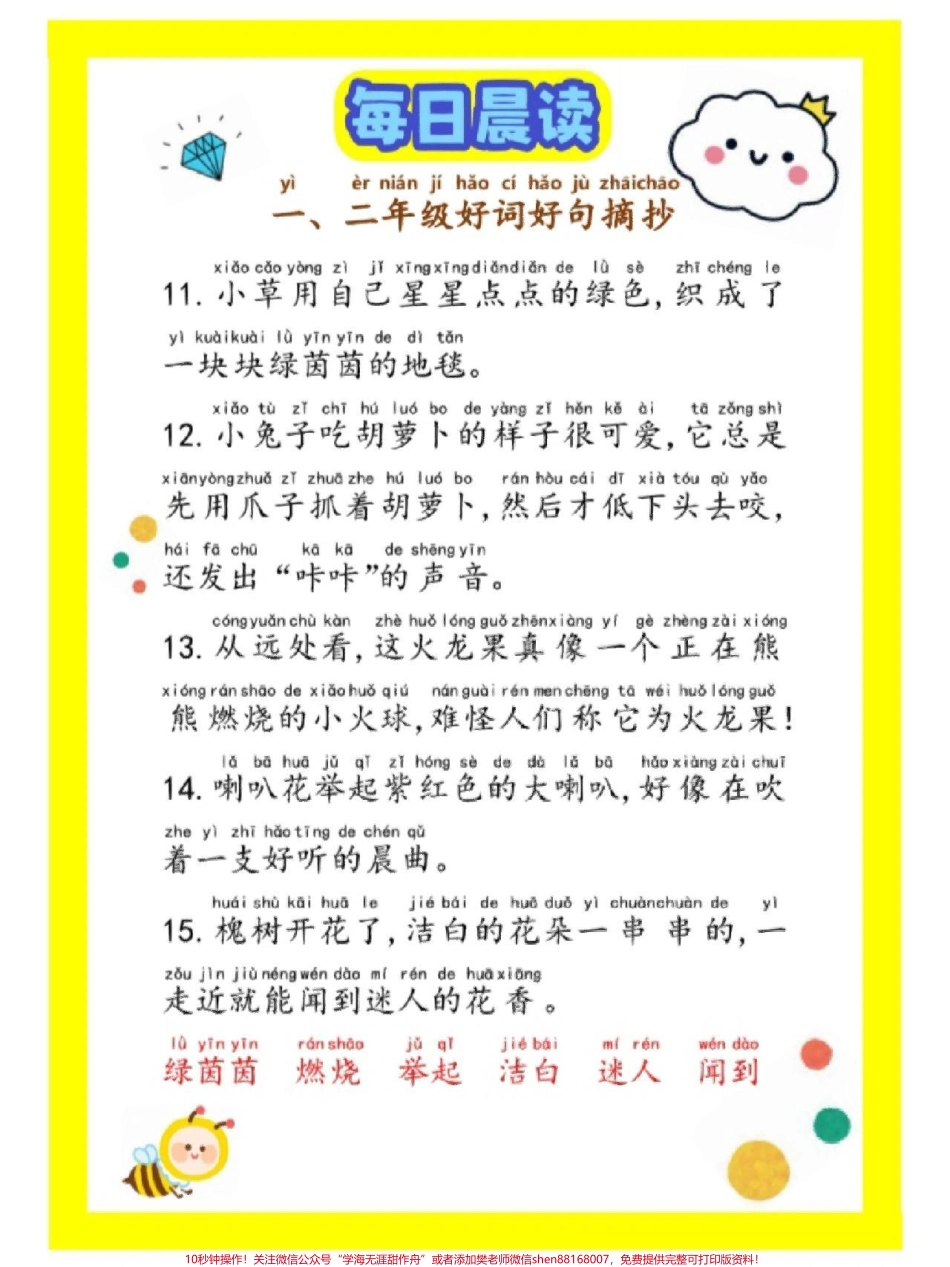 每日晨读
yì èr nián jí hǎo cí hǎo jù zhāichāo
一、二年级好词好句摘抄
xiǎo cǎo yòng zì jǐ xīngxīngdiǎndiǎn de lǜ sè zhī chéng le
11. 小草用自己星星点点的绿色,织成了
yì kuàikuài lǜ yīn yīn de dì tǎn
一块块绿茵茵的地毯。
xiǎo tù zǐ chī hú luó bo de yàng zǐ hěn kě ài tā zǒng shì
12. 小兔子吃胡萝卜的样子很可爱,它总是
xiānyòngzhuǎ zǐ zhuā zhe hú luó bo rán hòu cái dī xià tóu qù yǎo
先用爪子抓着胡萝卜,然后才低下头去咬,
hái fā chū kā kā de shēng yīn
还发出“咔咔”的声音。
cóngyuǎn chù kàn zhè huǒ lóng guǒ zhēnxiàng yí gè zhèng zài xióng
13. 从远处看,这火龙果真像一个正在熊
xióng rán shāo de xiǎo huǒ qiú nán guài rén men chēng tā wéi huǒ lóng guǒ
熊燃烧的小火球,难怪人们称它为火龙果!
lǎ bā huā jǔ qǐ zǐ hóng sè de dà lǎ bā hǎo xiàng zài chuī
14. 喇叭花举起紫红色的大喇叭,好像在吹
zhe yì zhī hǎo tīng de chén qǔ
着一支好听的晨曲。
huái shù kāi huā le jié bái de huā duǒ yì chuànchuàn de yì
15. 槐树开花了,洁白的花朵一串串的,一
zǒu jìn jiù néng wén dào mí rén de huā xiāng
走近就能闻到迷人的花香。
lǜ yīn yīn rán shāo jǔ qǐ jié bái mí rén wén dào
绿茵茵 燃烧 举起 洁白 迷人 闻到
10秒钟操作！关注微信公众号“学海无涯甜作舟”或者添加樊老师微信shen88168007，免费提供完整可打印版资料！